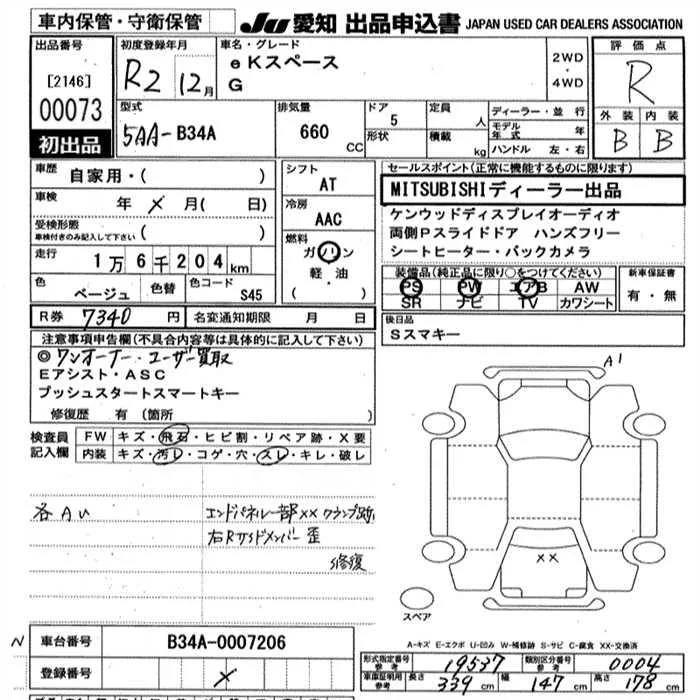 車内保管・守衛保管
JU 愛知 出品申込書 JAPAN USED CAR DEALERS ASSOCIATION
出品番号
[2146]
00073
初出品
初度登録年月
R2 12月
車名・グレード
eKスペース
G
2WD
・
4WD
評価点
R
外装 内装
B B
型式
5AA-B34A
排気量
660 CC
ドア
5
形状
定員
人
積載
kg
ディーラー・並行
モデル年式 年
ハンドル 左・右
車歴
自家用・( )
車検
年 × 月( 日)
受検形態
車検付きのみ記入して下さい ( )
走行
1万6千204km
色
ベージュ
色替
色コード
S45
シフト
AT
冷房
AAC
燃料
ガソリン
・
軽・油
( )
セールスポイント(正常に機能するものに限ります)
MITSUBISHIディーラー出品
ケンウッドディスプレイオーディオ
両側Pスライドドア ハンズフリー
シートヒーター・バックカメラ
装備品(純正品に限り○をつけてください)
PS PW エアB AW
SR ナビ TV カワシート
新車保証書
有・無
R券 7340 円
名変通知期限 月 日
後日品
Sスマキー
注意事項申告欄(不具合内容等は具体的に記入して下さい)
◎ワンオーナー・ユーザー買取
Eアシスト・ASC
プッシュスタートスマートキー
修復歴 有(箇所 )
検査員
記入欄
FW キズ・飛石・ヒビ割・リペア跡・X要
内装 キズ・汚レ・コゲ・穴・スレ・キレ・破レ
A1
各AU
エンドパネル一部×× クランプ跡
右Rサイドメンバー歪
修復
××
スペア
A-キズ E-エクボ U-凹み W-補修跡 S-サビ C-腐食 XX-交換済
N 車台番号 B34A-0007206
登録番号 ×
形式指定番号
参考
19537
類別区分番号
参考
0004
車庫証明用
参考
長さ 339 cm 幅 147 cm 高さ 178 cm